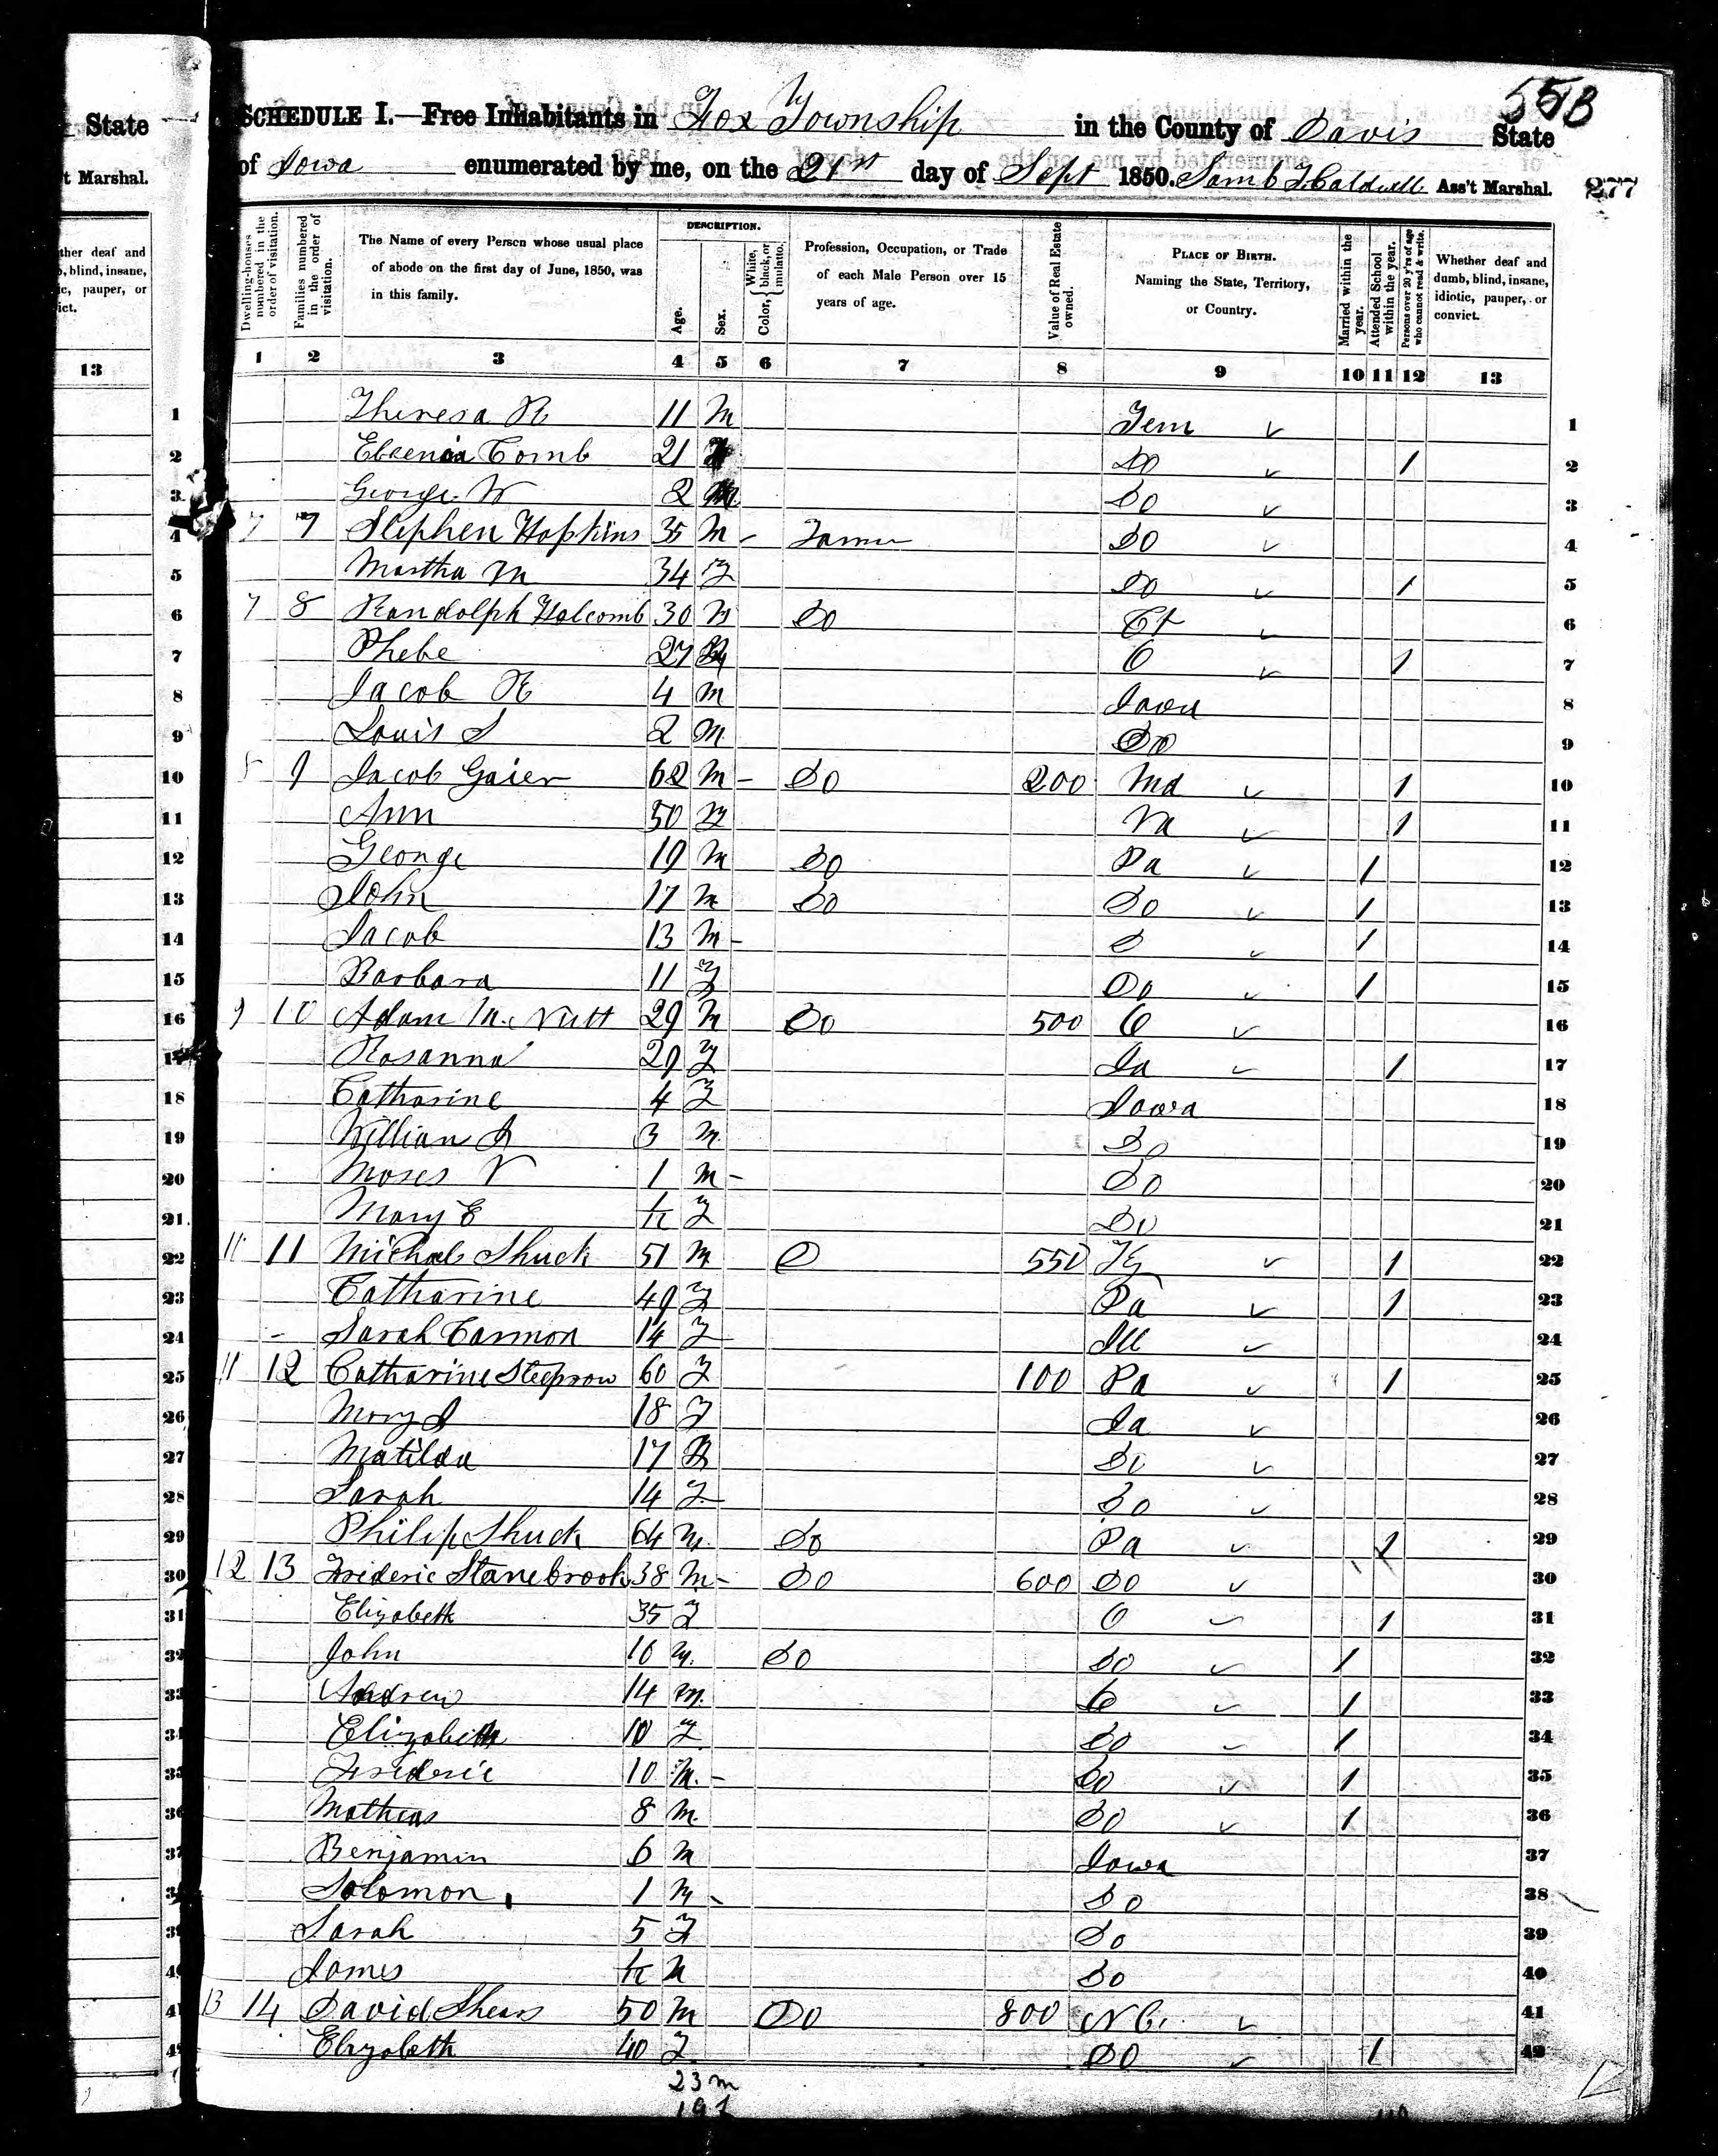 State
t Marshal.
ther deaf and
b, blind, insane,
ic, pauper, or
ict.
13
55B
SCHEDULE I.—Free Inhabitants in Fox Township in the County of Davis State
of Iowa enumerated by me, on the 21st day of Sept 1850. Ass't Marshal. 277
Dwelling-houses numbered in the order of visitation.
Families numbered in the order of visitation.
The Name of every Person whose usual place of abode on the first day of June, 1850, was in this family.
DESCRIPTION.
Age.
Sex.
Color, White, black, or mulatto.
Profession, Occupation, or Trade of each Male Person over 15 years of age.
Value of Real Estate owned.
PLACE OF BIRTH. Naming the State, Territory, or Country.
Married within the year.
Attended School within the year.
Persons over 20 y'rs of age who cannot read & write.
Whether deaf and dumb, blind, insane, idiotic, pauper, or convict.
1 2 3 4 5 6 7 8 9 10 11 12 13
1 Theresa R 11 M Tem 1
2 Comb 21 Do 1 2
3 George W 2 M Do 3
4 7 7 Stephen Hopkins 35 M Farmer Do 4
5 Martha M 34 F Do 1 5
6 7 8 Randolph Holcomb 30 M Do Ct 6
7 Phebe 27 O 1 7
8 Jacob R 4 M Iowa 8
9 Louis S 2 M Do 9
10 8 9 Jacob Gaier 62 M Do 200 Md 1 10
11 Ann 50 F Va 1 11
12 George 19 M Do Pa 1 12
13 John 17 M Do Do 1 13
14 Jacob 13 M Do 1 14
15 Barbara 11 F Do 1 15
16 9 10 Adam McNutt 29 M Do 500 O 16
17 Rosanna 29 F Ia 1 17
18 Catharine 4 F Iowa 18
19 William J 3 M Do 19
20 Moses V 1 M Do 20
21 Mary E F Do 21
22 11 11 Michale Shuck 51 M Do 550 Ky 1 22
23 Catharine 49 F Pa 1 23
24 Sarah Carmon 14 F Ill 24
25 11 12 Catharine Steeprow 60 F 100 Pa 1 25
26 Mary J 18 F Ia 26
27 Matilda 17 F Do 27
28 Sarah 14 F Do 28
29 Philip Shuck 64 M Do Pa 1 29
30 12 13 Frideric Stanebrook 38 M Do 600 Do 30
31 Elizabeth 35 F O 1 31
32 John 16 M Do Do 1 32
33 Andrew 14 M Do 1 33
34 Elizabeth 10 F Do 1 34
35 Frideric 10 M Do 1 35
36 Mathias 8 M Do 1 36
37 Benjamin 6 M Iowa 37
38 Solomon 1 M Do 38
39 Sarah 5 F Do 39
40 James M Do 40
41 13 14 David Shears 50 M Do 800 N C. 41
42 Elizabeth 40 F Do 1 42
23 m
19 f